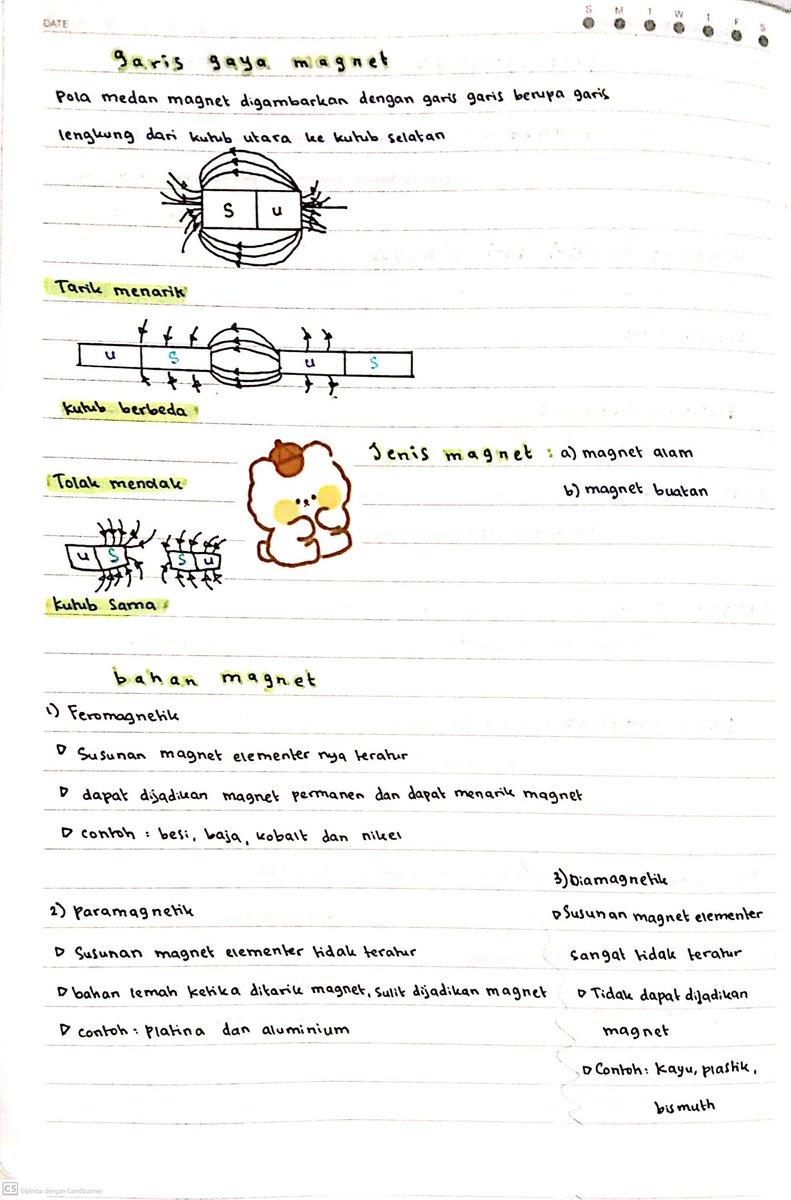 DATE
S M T W T F S
garis gaya magnet
Pola medan magnet digambarkan dengan garis garis berupa garis
lengkung dari kutub utara ke kutub selatan
S U
Tarik menarik
U S U S
kutub berbeda
Jenis magnet : a) magnet alam
b) magnet buatan
Tolak menolak
U S S U
kutub sama
bahan magnet
1) Feromagnetik
Susunan magnet elementer nya teratur
dapat dijadikan magnet permanen dan dapat menarik magnet
contoh : besi, baja, kobalt dan nikel
2) paramagnetik
Susunan magnet elementer tidak teratur
bahan lemah ketika ditarik magnet, sulit dijadikan magnet
contoh : platina dan aluminium
3) Diamagnetik
Susunan magnet elementer
sangat tidak teratur
Tidak dapat dijadikan
magnet
Contoh : kayu, plastik,
bismuth
CS Dipindai dengan CamScanner